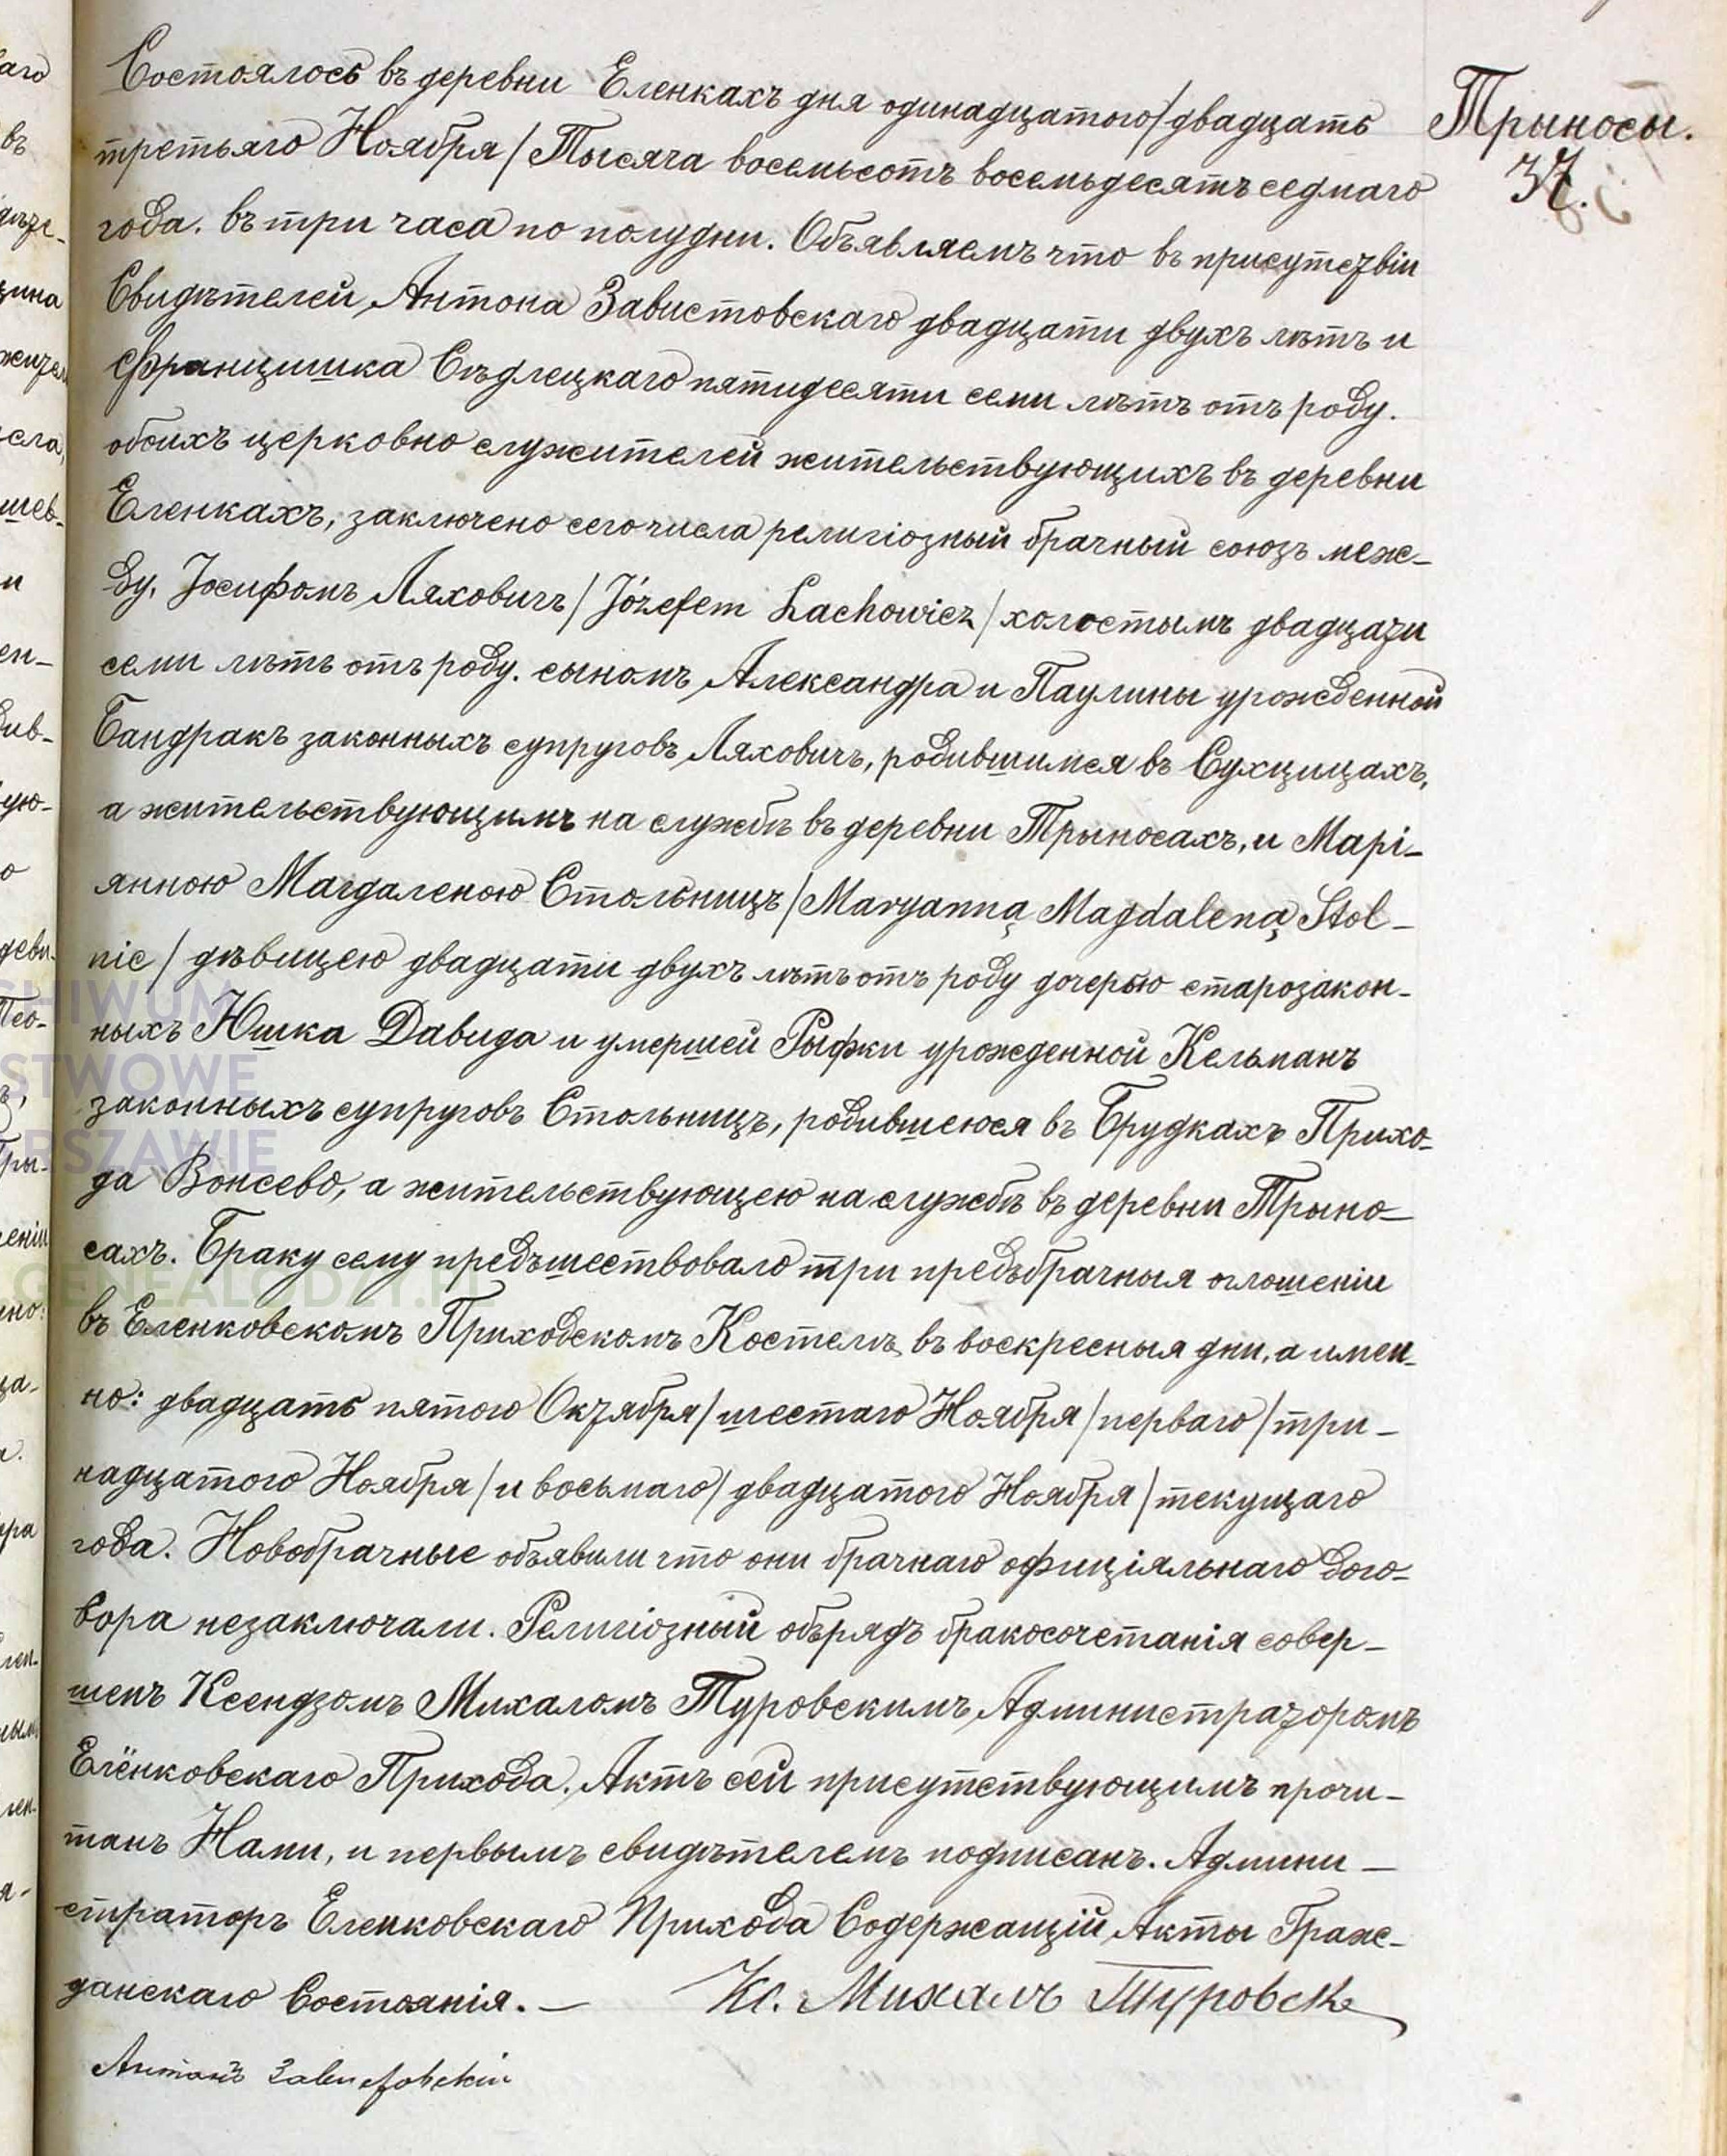 Состоялось въ деревни Еленкахъ дня одинадцатого/двадцать
третьяго Ноября/Тысяча восемьсотъ восемьдесятъ седмаго
года. въ три часа по полудни. Объявляемъ что въ присутствіи
Свидѣтелей, Антона Завистовскаго двадцати двухъ лѣтъ и
Францишка Сѣдлецкаго пятидесяти семи лѣтъ отъ роду.
обоихъ церковно служителей жительствующихъ въ деревни
Еленкахъ, заключено сего числа религіозный брачный союзъ меж-
ду, Іосифомъ Ляховичъ/Józefem Lachowicz/холостымъ двадцати
семи лѣтъ отъ роду. сыномъ Александра и Паулины урожденной
Бандракъ законныхъ супруговъ Ляховичъ, родившимся въ Сухцицахъ,
а жительствующимъ на службѣ въ деревни Трыносахъ, и Марі-
янною Магдаленою Стольницъ/Maryanną Magdaleną Stol-
nic/дѣвицею двадцати двухъ лѣтъ отъ роду дочерью старозакон-
ныхъ Юшка Давида и умершей Рыфки урожденной Кельманъ
законныхъ супруговъ Стольницъ, родившеюся въ Брудкахъ Прихо-
да Вонсево, а жительствующею на службѣ въ деревни Трыно-
сахъ. Браку сему предъшествовало три предъбрачныя оглошеніи
въ Еленковскомъ Приходскомъ Костелѣ, въ воскресныя дни, а имен-
но: двадцать пятого Октября/шестаго Ноября/перваго/три-
надцатого Ноября/и восьмаго/двадцатого Ноября/текущаго
года. Новобрачные объявили что они брачнаго офиціяльнаго дого-
вора незаключали. Религіозный обърядъ бракосочетанія совер-
шенъ Ксендзомъ Михаломъ Туровскимъ, Администраторомъ
Елёнковскаго Прихода. Актъ сей присутствующимъ прочи-
танъ Нами, и первымъ свидѣтелемъ подписанъ. Админи-
страторъ Еленковскаго Прихода Содержащій Акты Граж-
данскаго Состоянія. — Кс. Михалъ Туровск
Антонъ Завистовскій
Трыносы.
37.